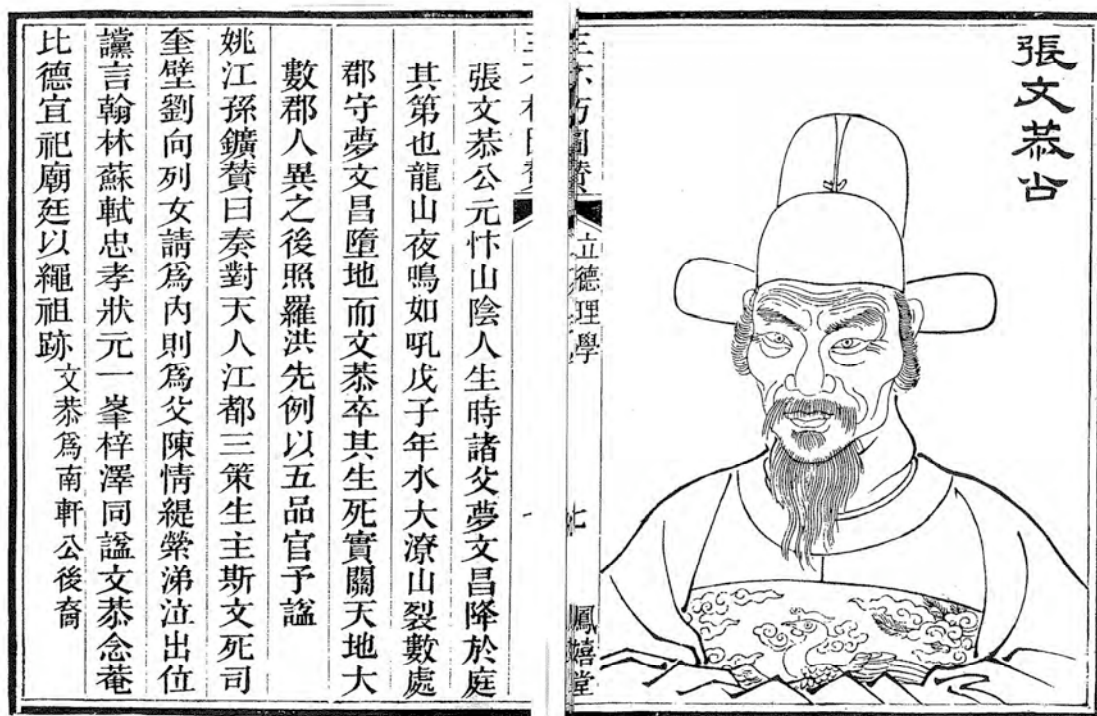 張文恭公
立德理學
七
鳳嬉堂
張文恭公元忭山陰人生時諸父夢文昌降於庭
其第也龍山夜鳴如吼戊子年水大潦山裂數處
郡守夢文昌墮地而文恭卒其生死實關天地大
數郡人異之後照羅洪先例以五品官予諡
姚江孫鑛贊曰奏對天人江都三策生主斯文死司
奎壁劉向列女請爲內則爲父陳情緹縈涕泣出位
讜言翰林蘇軾忠孝狀元一峯梓澤同諡文恭念菴
比德宜祀廟廷以繩祖跡文恭爲南軒公後裔